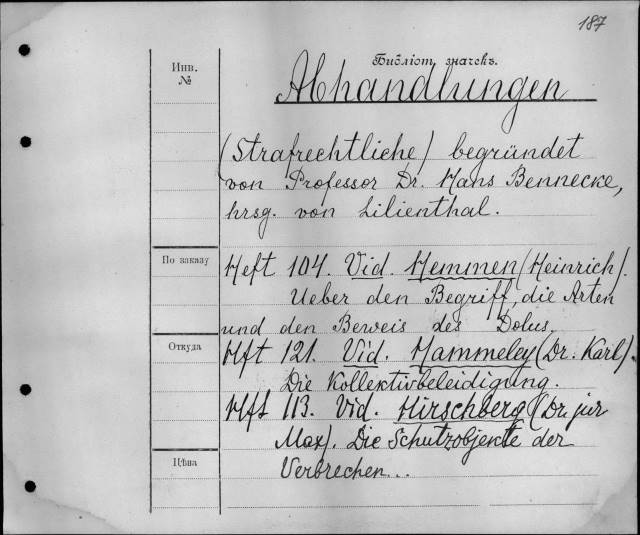 187
Библіот. значекъ.
Инв.
№
Abhandlungen
(Strafrechtliche) begründet
von Professor Dr. Hans Bennecke,
hrsg. von Lilienthal.
По заказу
Heft 104. Vid. Hemmen (Heinrich).
Ueber den Begriff, die Arten
und den Beweis des Dolus.
Откуда
Hft 121. Vid. Hammeley (Dr. Karl).
Die Kollektivbeleidigung.
Hft 113. Vid. Hirschberg (Dr. jur
Max). Die Schutzobjekte der
Цѣна
Verbrechen...